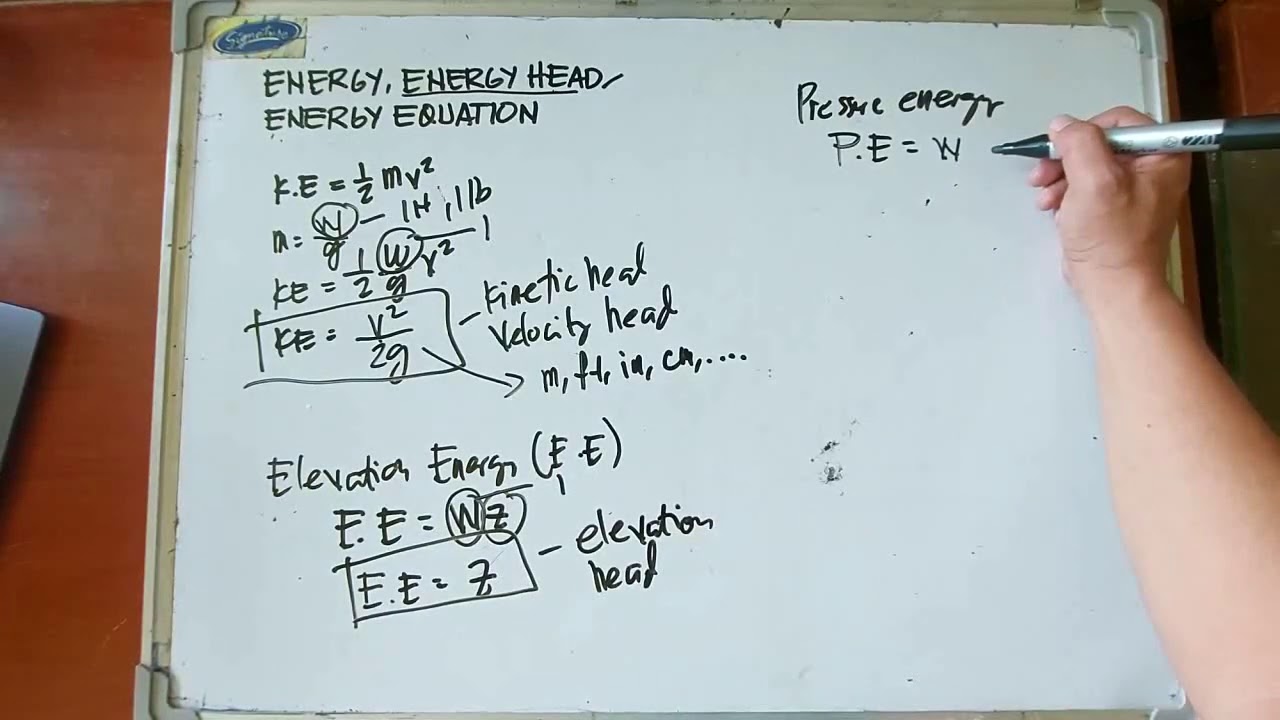 Signature
ENERGY, ENERGY HEAD,
ENERGY EQUATION
K.E = 1/2 mv²
m = W/g - 1N, 1lb
KE = 1/2 W/g v² 1
KE = v²/2g
- kinetic head
velocity head
m, ft, in, cm, ....
Elevation Energy (E.E)
1
E.E = WZ
E.E = Z
- elevation
head
Pressure energy
P.E = W
220